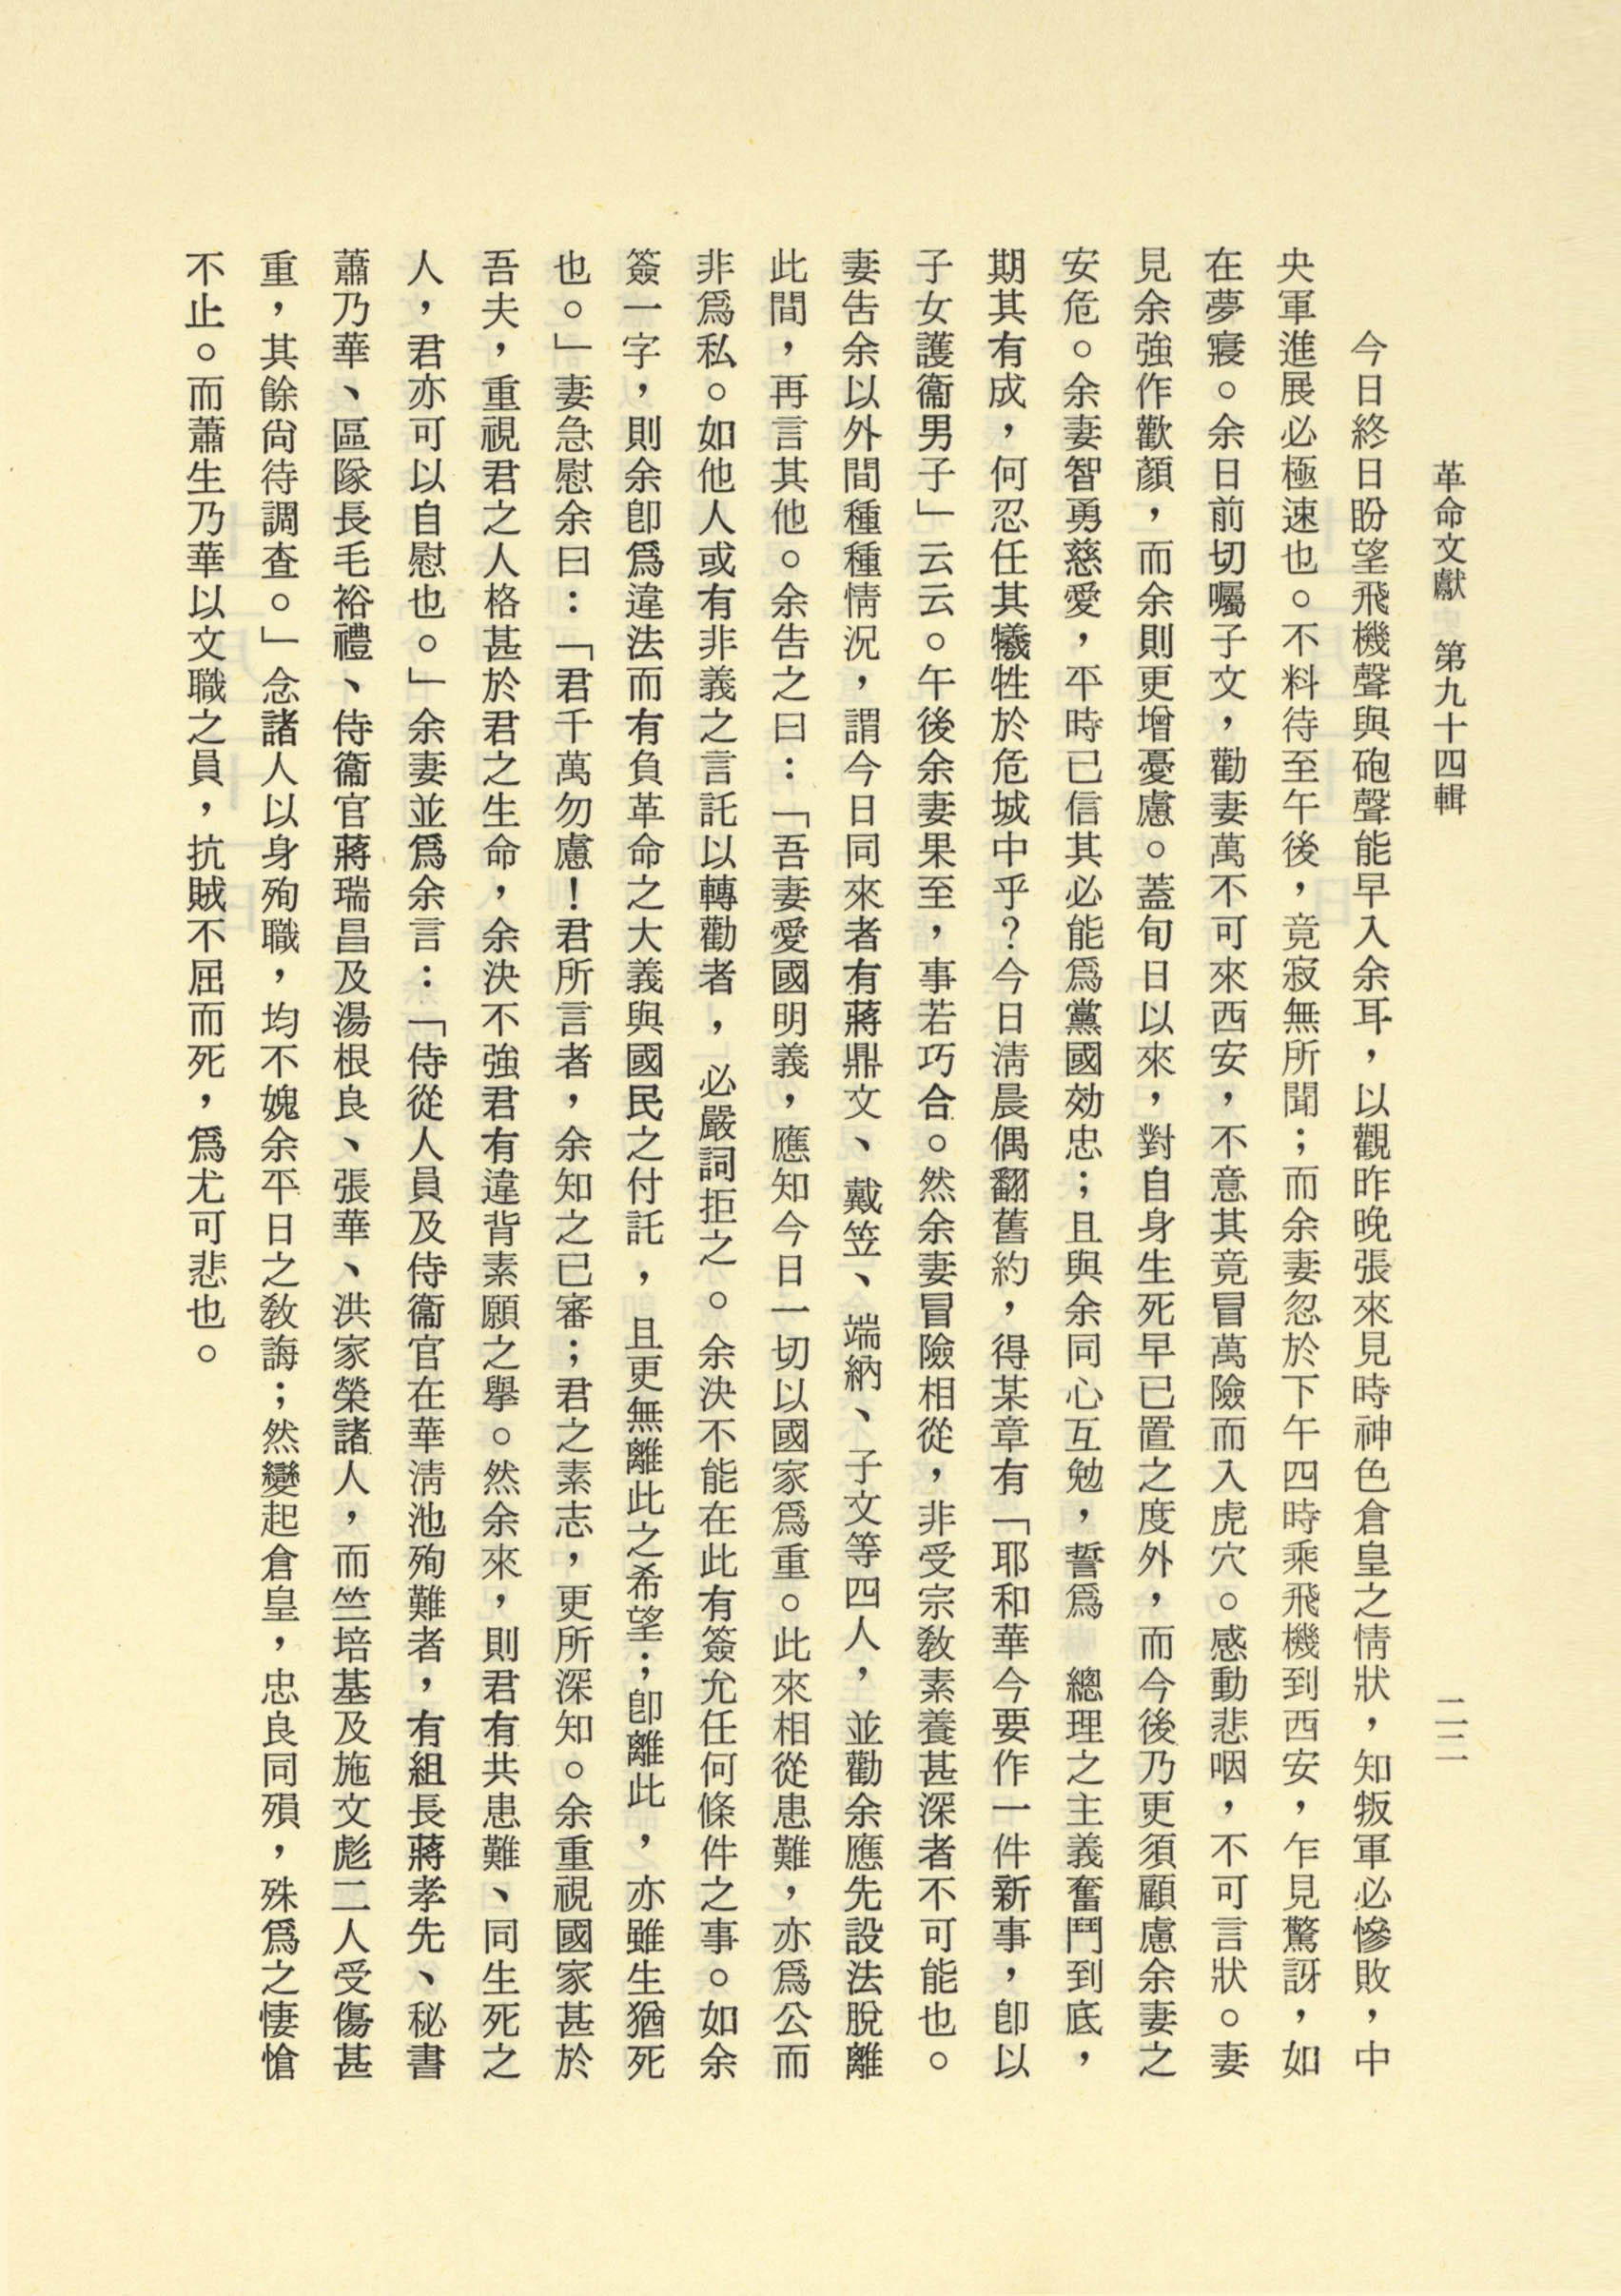 革命文獻　第九十四輯　二二
今日終日盼望飛機聲與砲聲能早入余耳，以觀昨晚張來見時神色倉皇之情狀，知叛軍必慘敗，中
央軍進展必極速也。不料待至午後，竟寂無所聞；而余妻忽於下午四時乘飛機到西安，乍見驚訝，如
在夢寢。余日前切囑子文，勸妻萬不可來西安，不意其竟冒萬險而入虎穴。感動悲咽，不可言狀。妻
見余強作歡顏，而余則更增憂慮。蓋旬日以來，對自身生死早已置之度外，而今後乃更須顧慮余妻之
安危。余妻智勇慈愛，平時已信其必能爲黨國効忠；且與余同心互勉，誓爲　總理之主義奮鬥到底，
期其有成，何忍任其犧牲於危城中乎？今日淸晨偶翻舊約，得某章有「耶和華今要作一件新事，卽以
子女護衞男子」云云。午後余妻果至，事若巧合。然余妻冒險相從，非受宗敎素養甚深者不可能也。
妻告余以外間種種情況，謂今日同來者有蔣鼎文、戴笠、端納、子文等四人，並勸余應先設法脫離
此間，再言其他。余告之曰：「吾妻愛國明義，應知今日一切以國家爲重。此來相從患難，亦爲公而
非爲私。如他人或有非義之言託以轉勸者，必嚴詞拒之。余決不能在此有簽允任何條件之事。如余
簽一字，則余卽爲違法而有負革命之大義與國民之付託，且更無離此之希望；卽離此，亦雖生猶死
也。」妻急慰余曰：「君千萬勿慮！君所言者，余知之已審；君之素志，更所深知。余重視國家甚於
吾夫，重視君之人格甚於君之生命，余決不強君有違背素願之舉。然余來，則君有共患難、同生死之
人，君亦可以自慰也。」余妻並爲余言：「侍從人員及侍衞官在華淸池殉難者，有組長蔣孝先、秘書
蕭乃華、區隊長毛裕禮、侍衞官蔣瑞昌及湯根良、張華、洪家榮諸人，而竺培基及施文彪二人受傷甚
重，其餘尙待調查。」念諸人以身殉職，均不媿余平日之敎誨；然變起倉皇，忠良同殞，殊爲之悽愴
不止。而蕭生乃華以文職之員，抗賊不屈而死，爲尤可悲也。